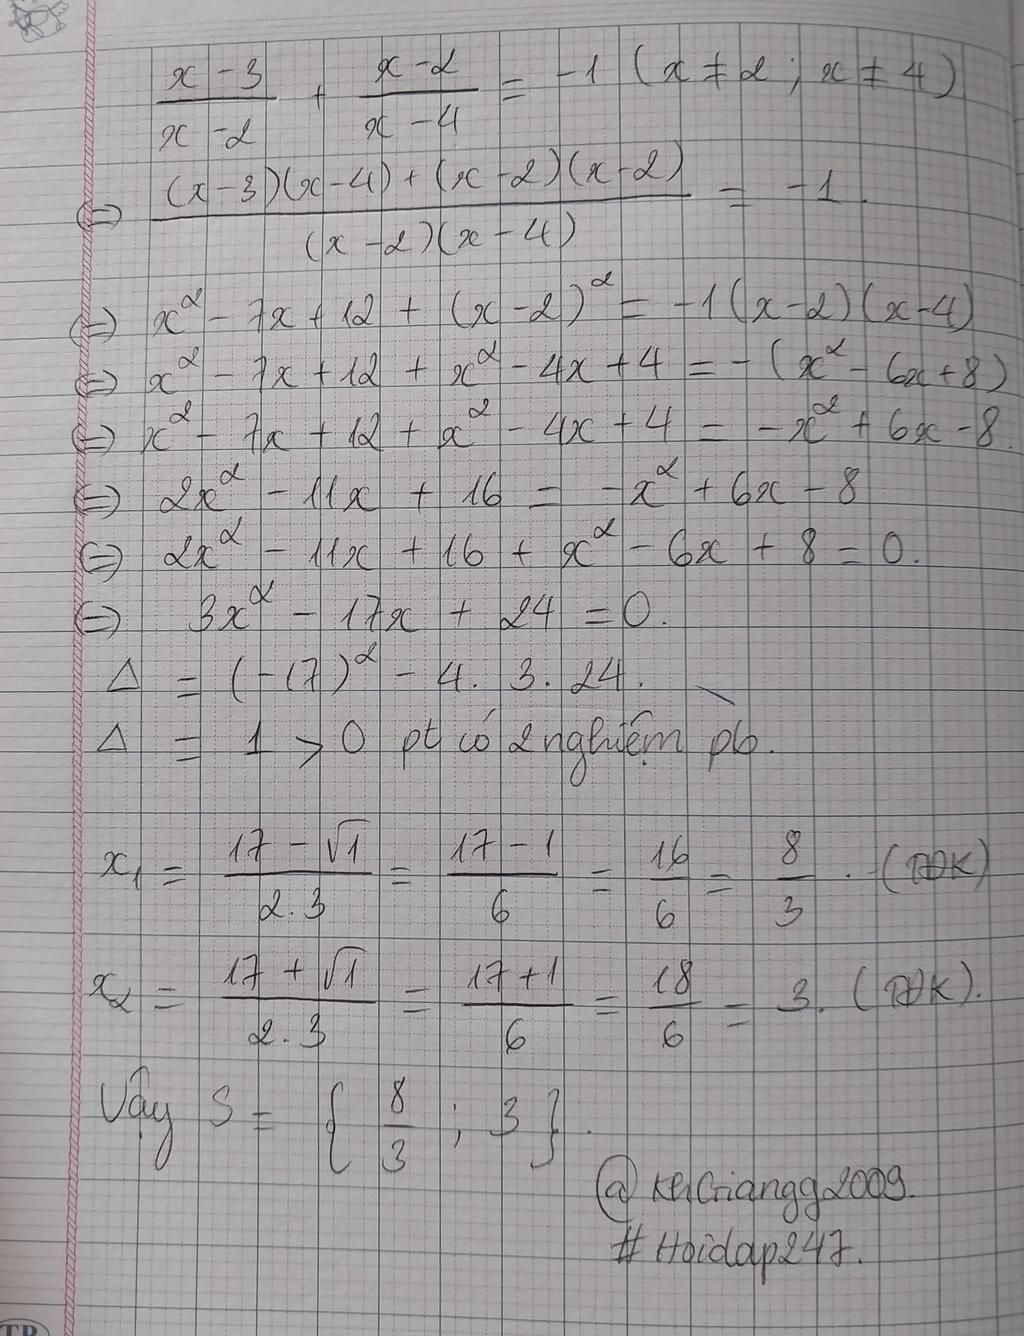 x-3/x-2 + x-2/x-4 = -1 (x ≠ 2; x ≠ 4)
⇔ (x-3)(x-4)+(x-2)(x-2)/(x-2)(x-4) = -1.
⇔ x² - 7x + 12 + (x-2)² = -1(x-2)(x-4)
⇔ x² - 7x + 12 + x² - 4x + 4 = -(x² - 6x + 8)
⇔ x² - 7x + 12 + x² - 4x + 4 = -x² + 6x - 8.
⇔ 2x² - 11x + 16 = -x² + 6x - 8
⇔ 2x² - 11x + 16 + x² - 6x + 8 = 0.
⇔ 3x² - 17x + 24 = 0.
Δ = (-17)² - 4. 3. 24.
Δ = 1 > 0 pt có 2 nghiệm pb.
x₁ = 17 - √1/2.3 = 17 - 1/6 = 16/6 = 8/3. (TĐK)
x₂ = 17 + √1/2.3 = 17 + 1/6 = 18/6 = 3. (TĐK).
Vậy S = { 8/3 ; 3 }.
# Hoidap247.